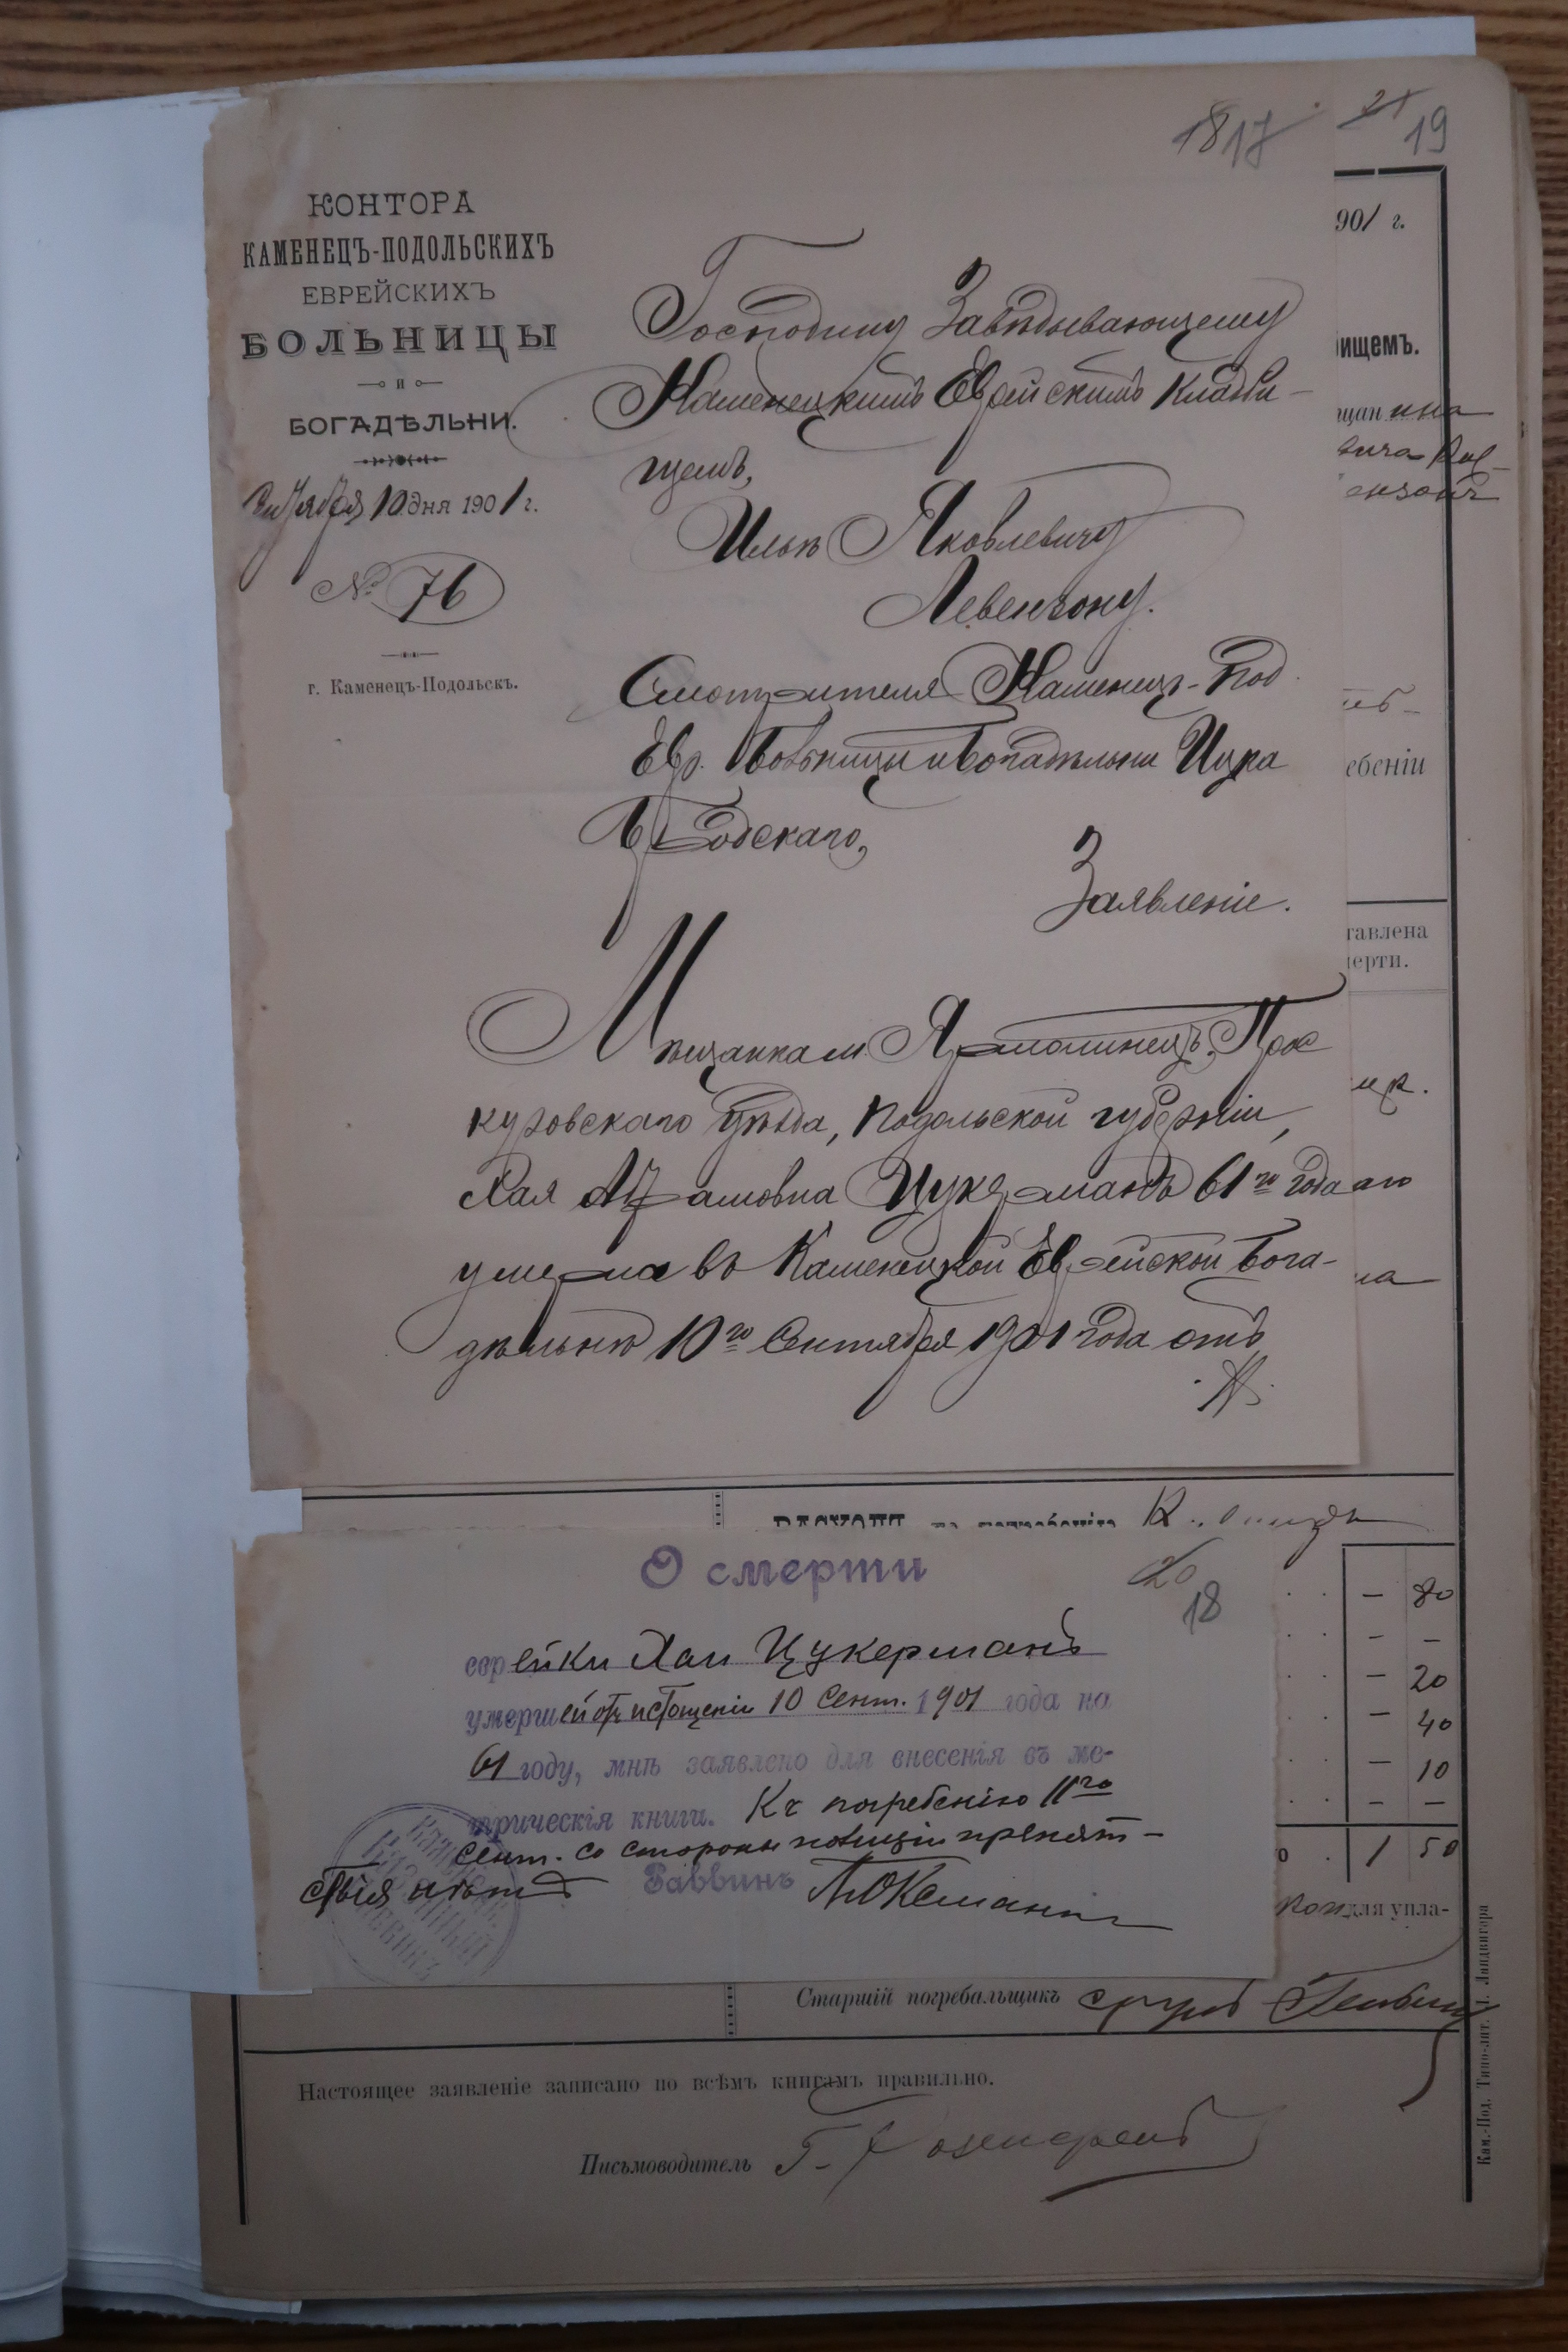 1817
21
19
КОНТОРА
КАМЕНЕЦЪ-ПОДОЛЬСКИХЪ
ЕВРЕЙСКИХЪ
БОЛЬНИЦЫ
И
БОГАДѢЛЬНИ.
Сентября 10 дня 1901 г.
№ 76
г. Каменецъ-Подольскъ.
Господину Завѣдывающему
Каменецкимъ Еврейскимъ Кладби-
щемъ,
Ильѣ Яковлевичу
Левензону.
Смотрителя Каменец-Под.
Евр. Больницы и Богадѣльни Ицка
Бродскаго,
Заявленіе.
Мѣщанка м. Ярмолинецъ, Прос
куровскаго уѣзда, Подольской губерніи,
Хая Абрамовна Цукерманъ 61го года
умерла въ Каменецкой Еврейской Бога-
дѣльнѣ 10го Сентября 1901 года отъ
901 г.
ищемъ.
щанина
ебеніи
тавлена
мерти.
О смерти
20
18
еврейки Хаи Цукерманъ
умершей отъ истощенія 10 Сент. 1901 года на
61 году, мнѣ заявлено для внесенія въ ме-
трическія книги. Къ погребенію 11го
Сент. со стороны полиціи препят-
ствія нѣтъ
Раввинъ
80
20
40
10
1 50
коп для упла-
Старшій погребальщикъ
Настоящее заявленіе записано по всѣмъ книгамъ правильно.
Письмоводитель
Кам.-Под. Типо-лит. Ландвигера